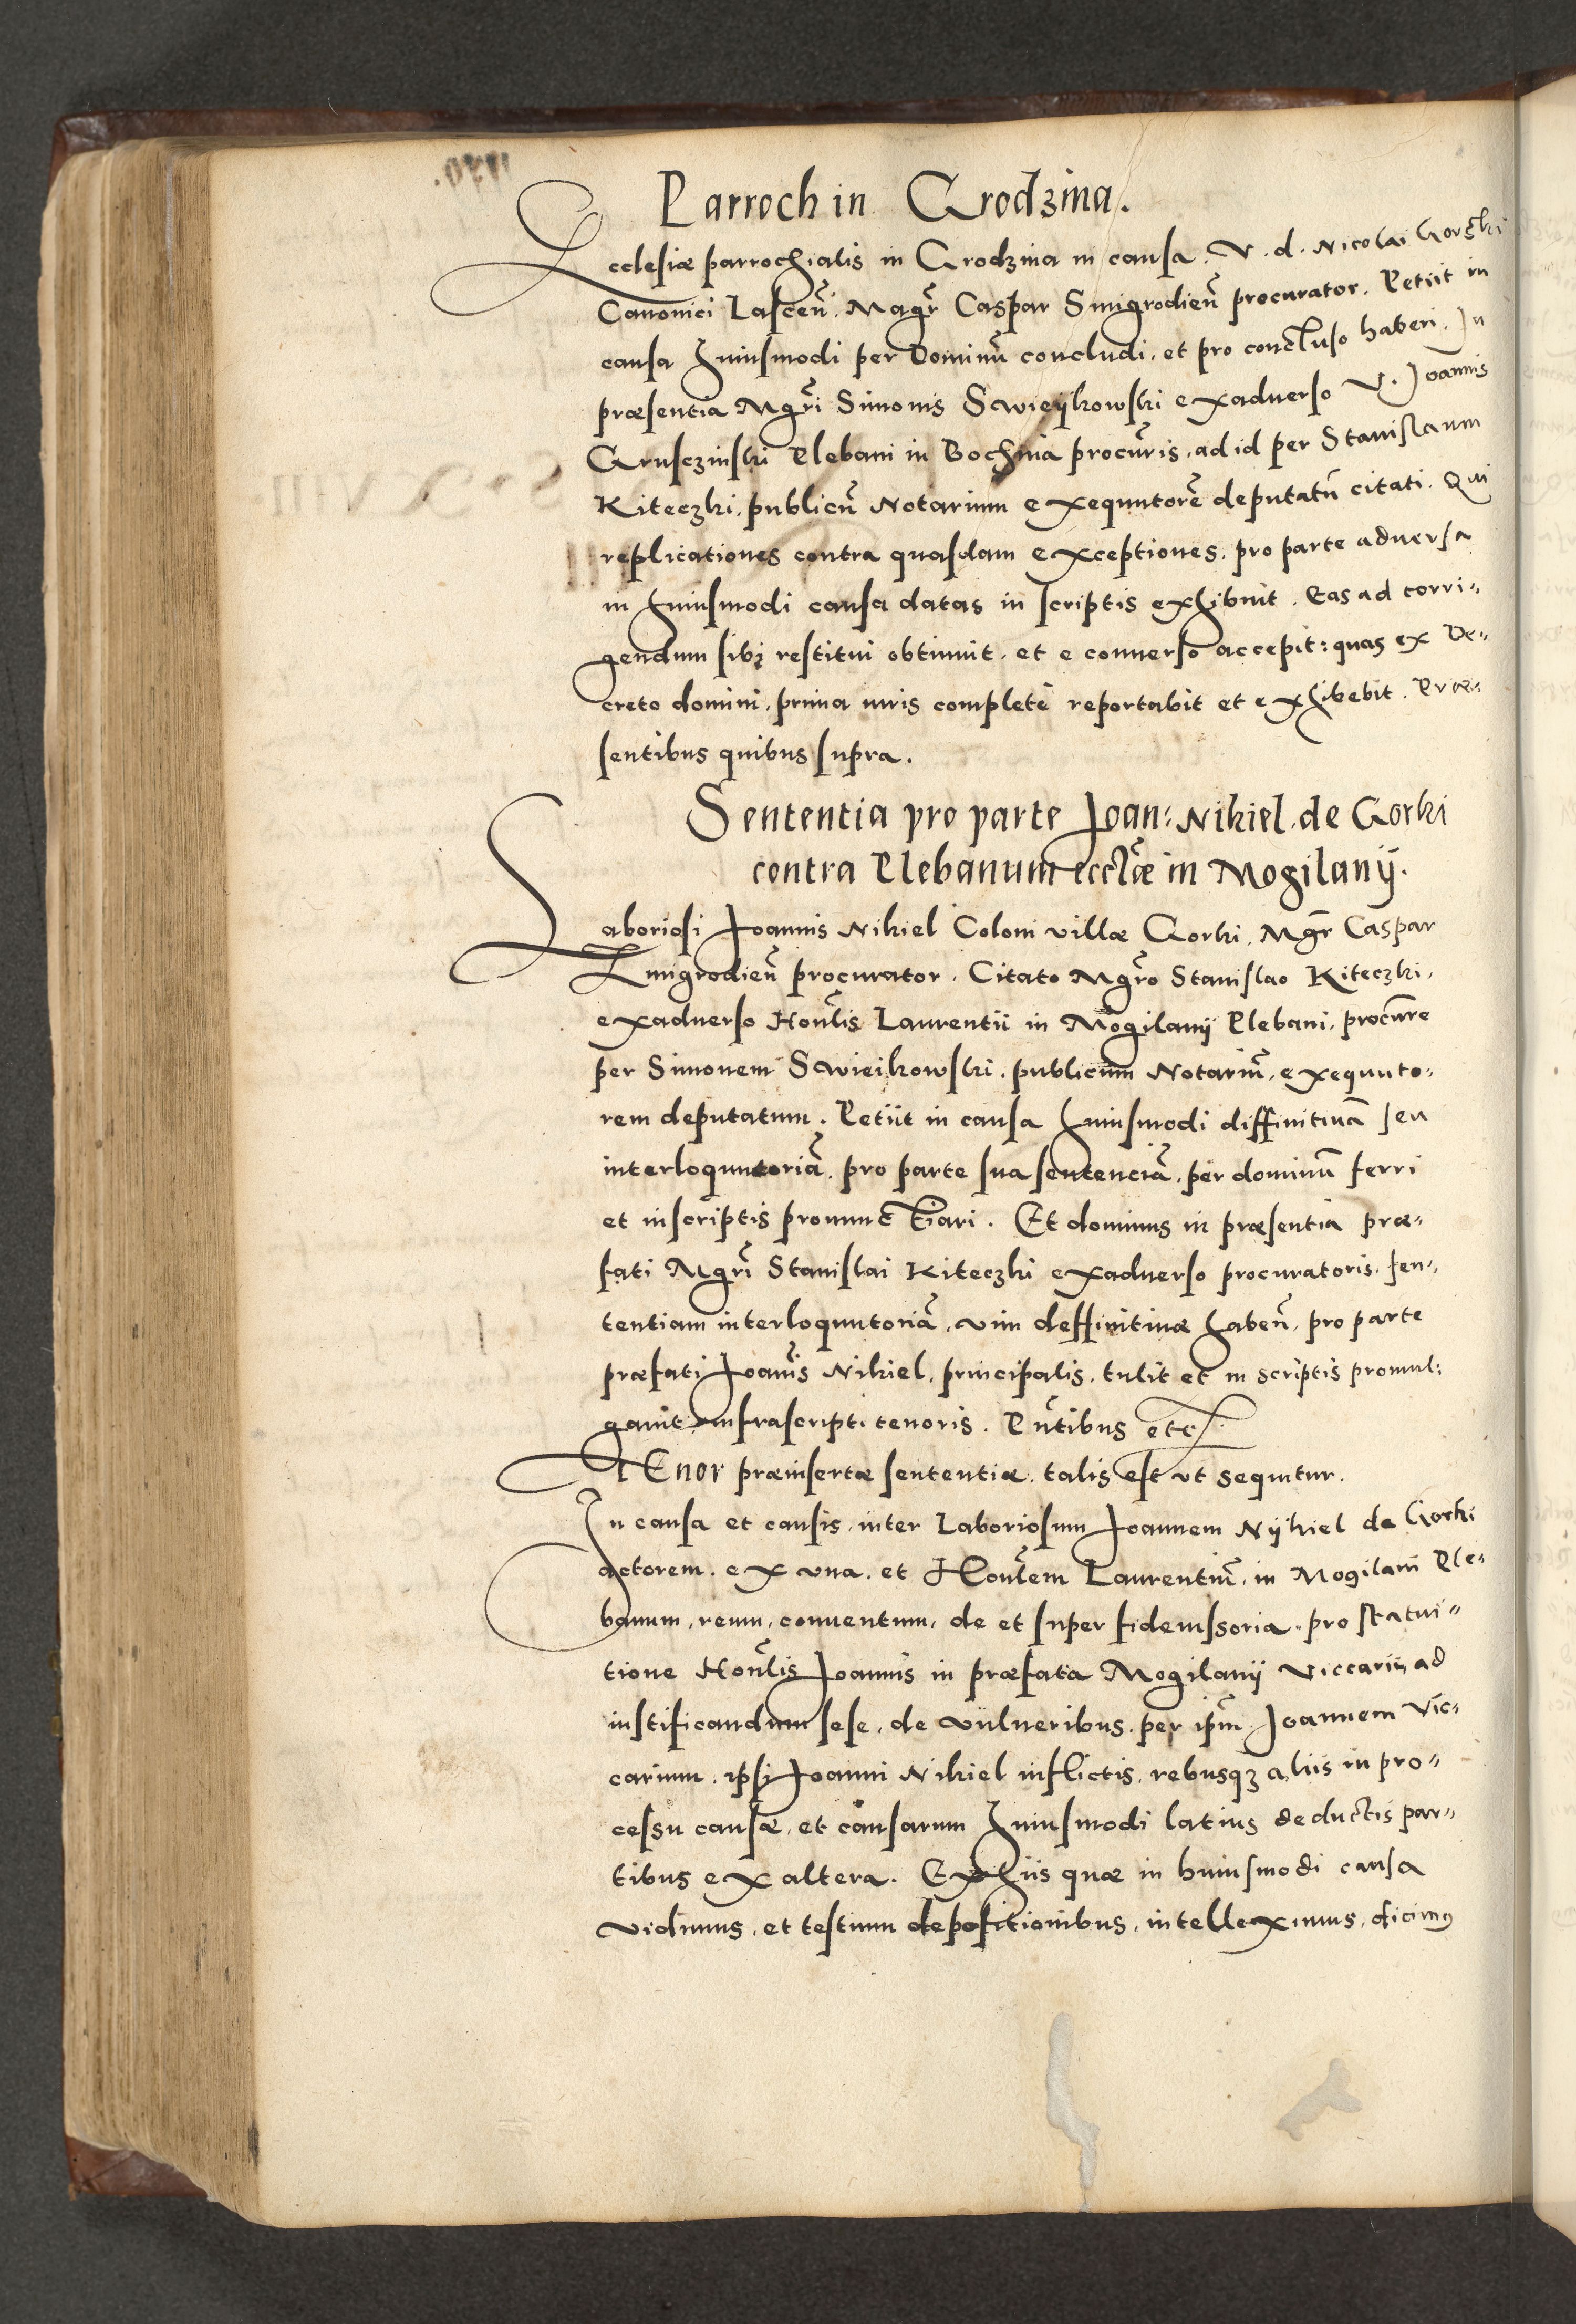 Parroch in Grodzina.
Ecclesiæ parrochialis in Grodzina in causa. V. d. Nicolai Gorski
Canonici Lasceñ. Magr̃ Caspar Smigrodieñ procurator. Petiit in
causa huiusmodi per Dominũ concludi, et pro concluso haberi. In
præsentia Mgr̃i Simonis Swieykowski exaduerso V. Joannis
Grusczinski Plebani in Bochnia procur̃is, ad id per Stanislaum
Kiteczki, publicũ Notarium exequutorẽ deputatũ citati. Qui
replicationes contra quasdam exceptiones, pro parte aduersa
in huiusmodi causa datas in scriptis exhibuit. Eas ad corri-
gendum sibi restitui obtinuit, et e conuerso accepit: quas ex De-
creto domini, prima iuris complete reportabit et exhibebit. Præ-
sentibus quibus supra.
Sententia pro parte Joan: Nikiel de Gorki
contra Plebanum eccl̃æ in Mogilanij.
Laboriosi Joannis Nikiel Coloni villæ Gorki, Mgr̃ Caspar
Zmigrodieñ procurator. Citato Mgr̃o Stanislao Kiteczki,
exaduerso Hon̄lis Laurentii in Mogilanij Plebani, procur̃re
per Simonem Swieikowski, publicum Notariũ, exequuto-
rem deputatum. Petiit in causa huiusmodi diffinitiuã seu
interloquutoriã, pro parte sua sentenciã, per dominũ ferri
et in scriptis pronunctiari. Et dominus in præsentia præ-
fati Mgr̃i Stanislai Kiteczki exaduerso procuratoris, sen-
tentiam interloquutoriã, vim deffinitiuæ habeñ, pro parte
præfati Joañis Nikiel, principalis, tulit et in scriptis promul-
gauit infrascripti tenoris. Pñtibus etc.
TEnor præinsertæ sententiæ, talis est vt sequitur.
In causa et causis, inter Laboriosum Joannem Nykiel de Gorki
actorem, ex vna, et Hon̄lem Laurentiũ, in Mogilani Ple-
banum, reum, conuentum, de et super fideiussoria, pro statui-
tione Hon̄lis Joannis in præfata Mogilanij Viccarii, ad
iustificandum sese, de vulneribus, per ip̄m Joannem Vic-
carium, ipsi Joanni Nikiel inflictis, rebusqʒ aliis in pro-
cessu causæ, et causarum huiusmodi latius deductis par-
tibus ex altera. Ex hiis quæ in huiusmodi causa
vidimus, et testium depositionibus, intelleximus, dicimꝰ